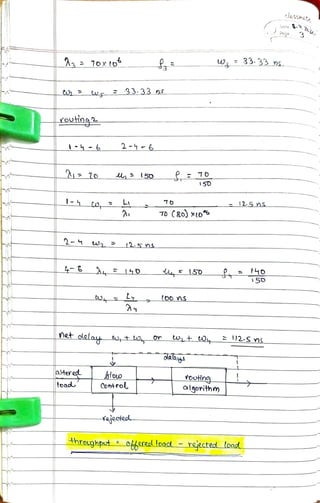 classmate
Page 3
λ₃ = 70×10⁶ ρ₃ = w₃ = 33.33 ns
w₅ = 33.33 ns
routing 2
1-4-6 2-4-6
λ₁ = 70 μ₁ = 150 ρ₁ = 70/150
1-4 w₁ = L₁/λ₁ = 70/70 (80)×10⁶ = 12.5 ns
2-4 w₂ = 12.5 ns
4-6 λ₄ = 140 μ₄ = 150 ρ₄ = 140/150
w₄ = L₄/λ₄ = 100 ns
net delay w₁ + w₄ or w₂ + w₄ = 112.5 ns
delays
offered load
flow control
routing algorithm
rejected
throughput = offered load - rejected load